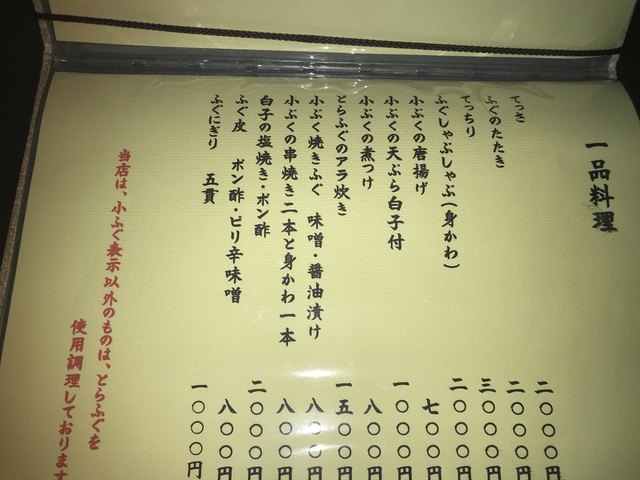 一品料理
てっさ 二〇〇〇円
ふぐのたたき 二〇〇〇円
てっちり 三〇〇〇円
ふぐしゃぶしゃぶ(身かわ) 二〇〇〇円
小ふぐの唐揚げ 七〇〇円
小ふぐの天ぷら白子付 一〇〇〇円
小ふぐの煮つけ 八〇〇円
とらふぐのアラ炊き 一五〇〇円
小ふぐ焼きふぐ 味噌・醤油漬け 八〇〇円
小ふぐの串焼き二本と身かわ一本 八〇〇円
白子の塩焼き・ポン酢 二〇〇〇円
ふぐ皮 ポン酢・ピリ辛味噌 八〇〇円
ふぐにぎり 五貫 一〇〇〇円
当店は、小ふぐ表示以外のものは、とらふぐを
使用調理しております